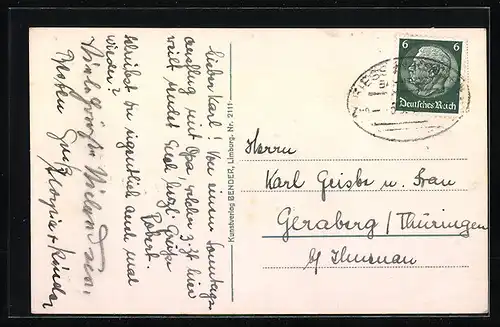 Lieber Karl! Von einem Sonntags-
ausflug mit Opa, welcher z. Zt. hier
weilt sendet Euch herzl. Grüße
Robert.
Schreibst Du eigentlich auch mal
wieder?
Viele Grüße
Besten Gruß
Kinder
Kunstverlag BENDER, Limburg-Nr. 2111
6 6
Deutsches Reich
Herrn
Karl Geisbe u. Frau
Geraberg / Thüringen
b/ Ilmenau